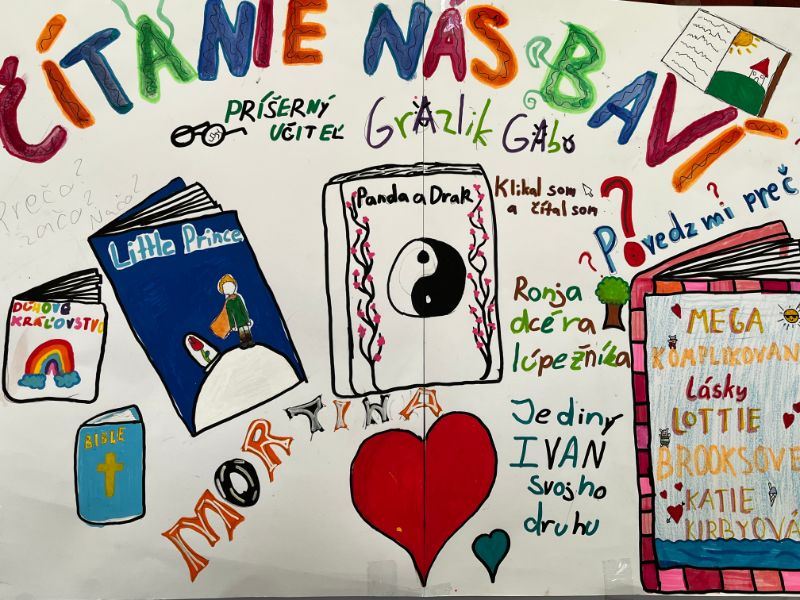 ČÍTANIE NÁS BAVÍ
PRÍŠERNÝ
UČITEĽ
Grázlik GAbo
Prečo?
začo?
Načo?
Panda a Drak
Klikal som
a čítal som
Povedz mi preč
Little Prince
DÚHOVÉ
KRÁĽOVSTVO
Ronja
dcéra
lúpežníka
MEGA
KOMPLIKOVAN
lásky
LOTTIE
BROOKSOVE
KATIE
KIRBYOVÁ
BIBLE
MORTINA
Jediný
IVAN
svojho
druhu